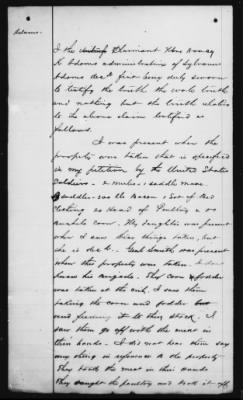 Adams.
I the Claimant Mrs Nancy
K Adams administratrix of Sylvanus
Adams decd first being duly sworn
to testify the truth the whole truth
and nothing but the truth relative
to the above claim testified as
follows.
I was present when the
property was taken that is specified
in my petition by the United States
Soldiers - 2 mules, 1 saddle mare
1 saddle - 100 lbs Bacon 1 Set of Bed
Clothing 20 Head of Poultry &
My daughter was present
when I saw these things taken, but
she is dead. Smith was present
when this property was taken.
knows his brigade. The Corn & fodder
was taken at the crib. I saw them
taking the corn and fodder
and feeding it to their stock. I
saw them go off with the meat in
their hands. I did not hear them say
any thing in reference to the property
They took the meat in their hands
They caught the poultry and took it off